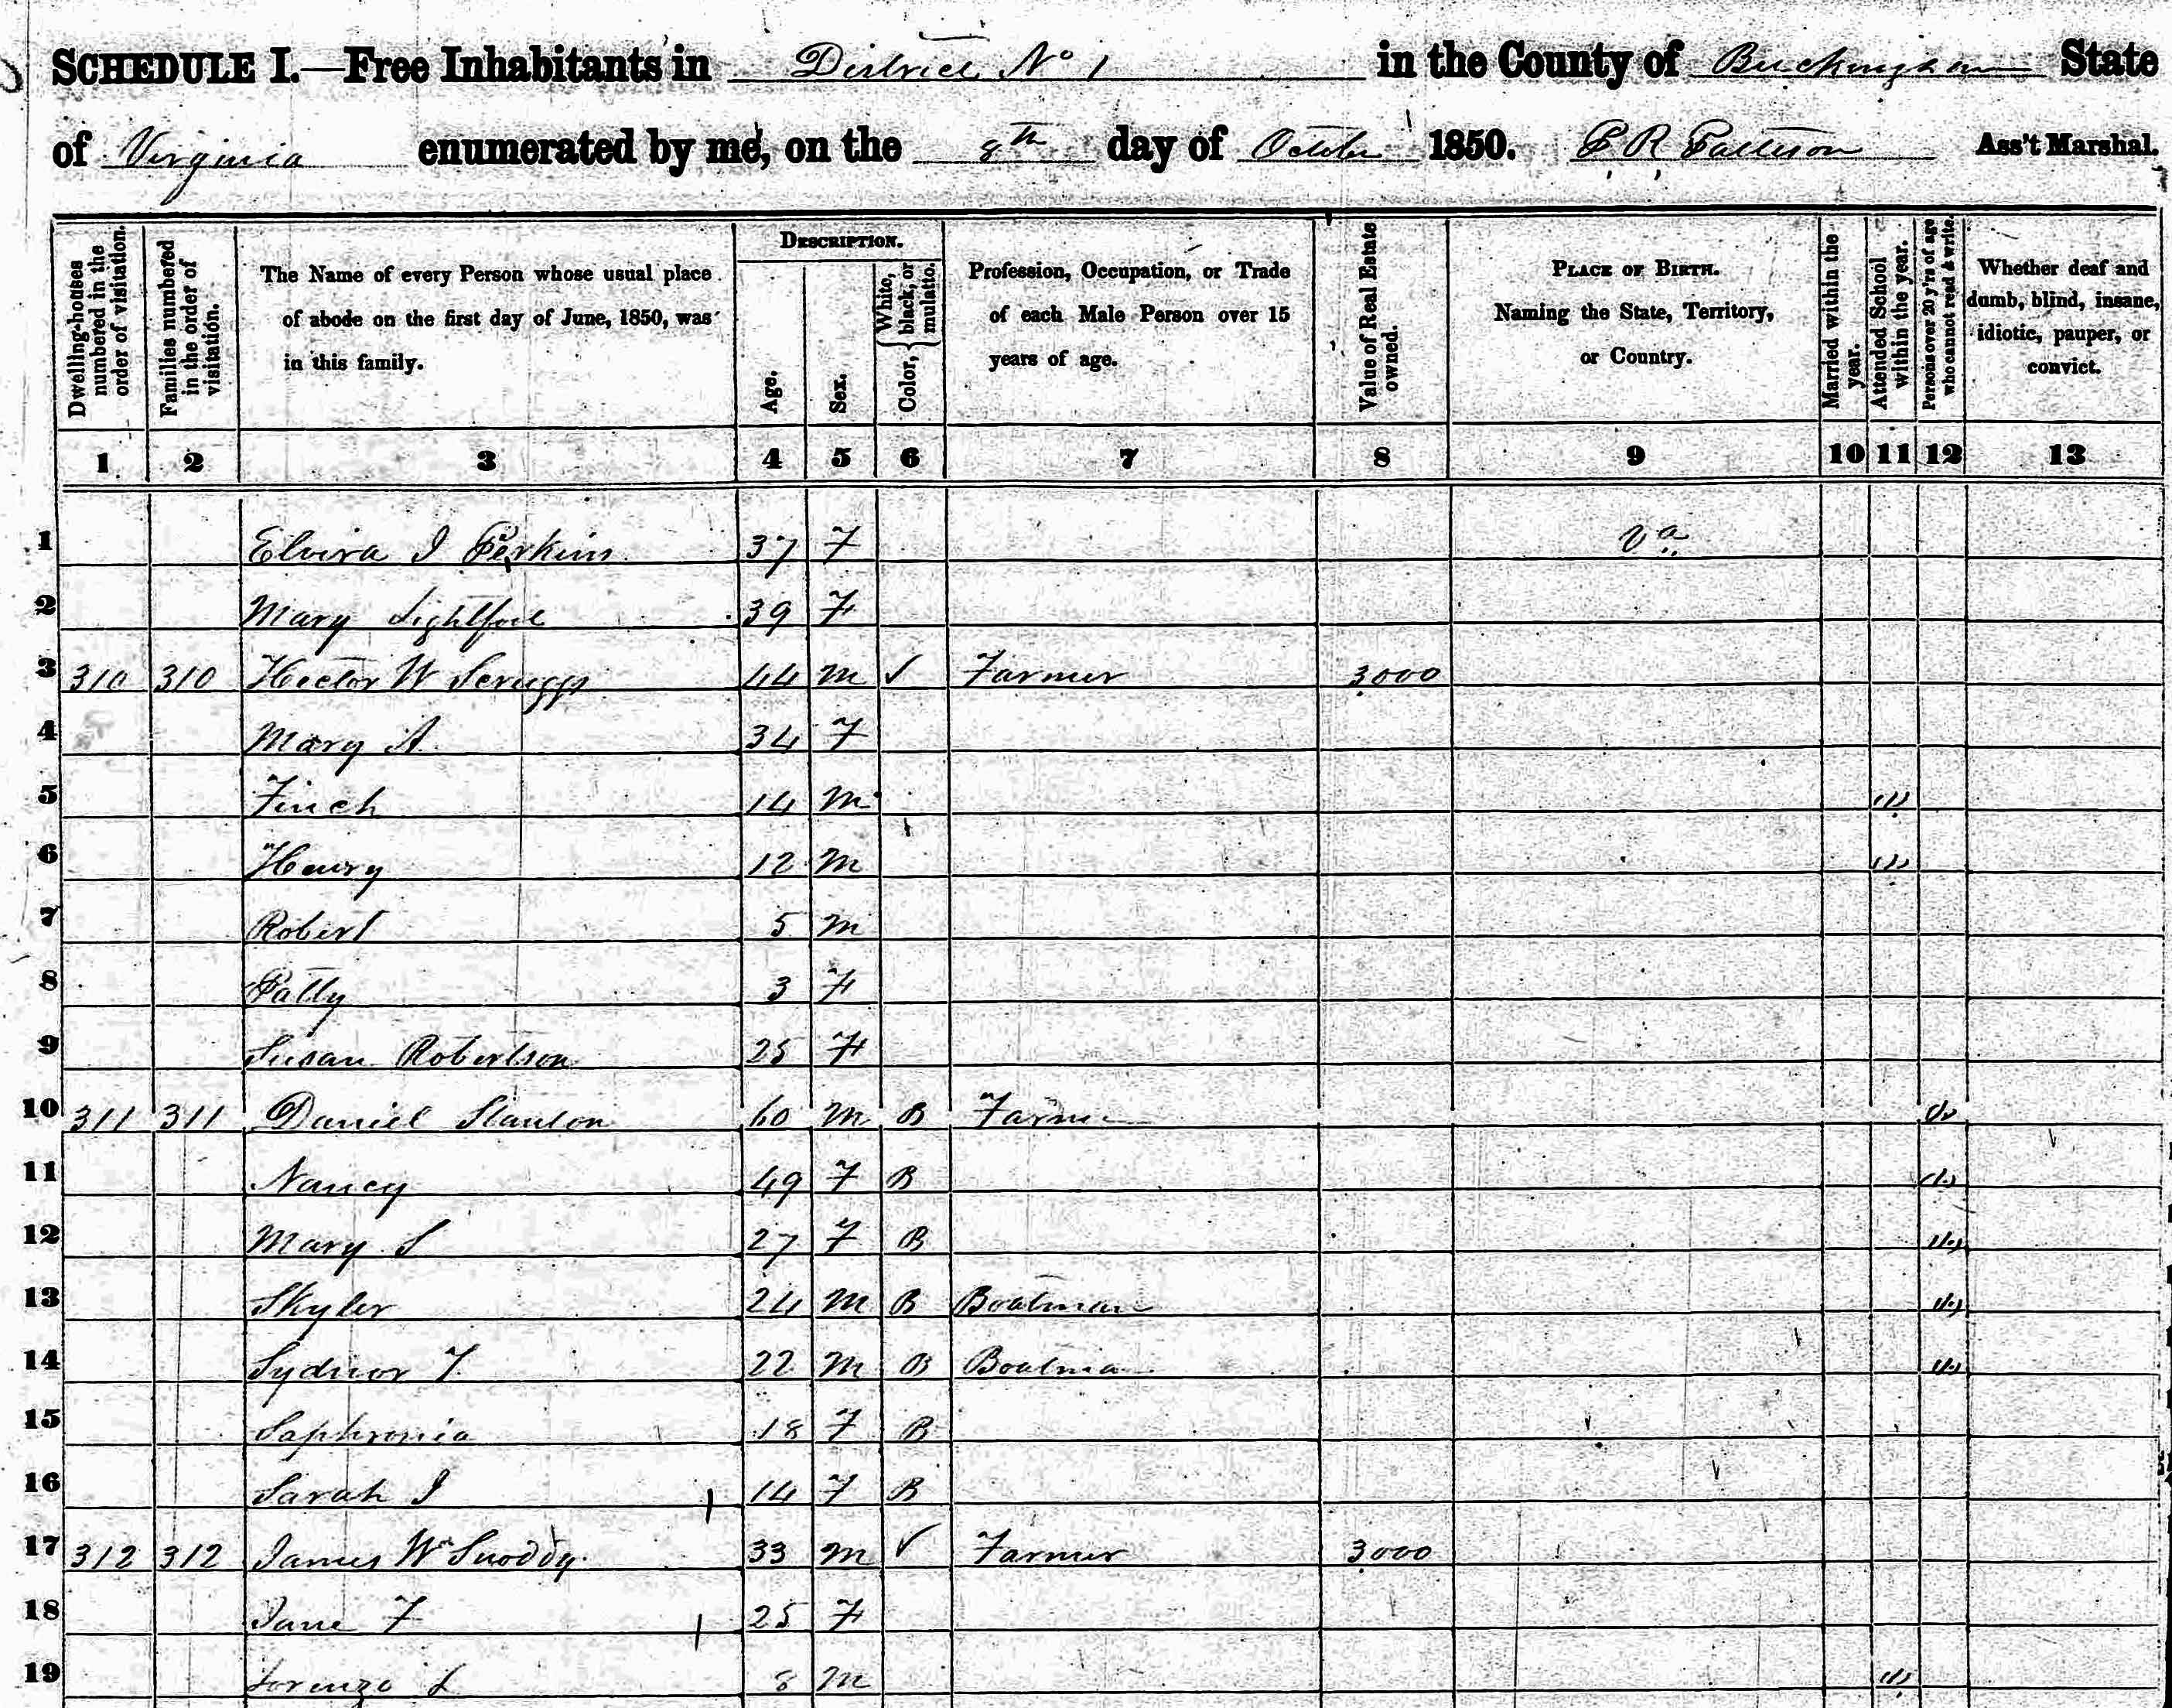 SCHEDULE I.—Free Inhabitants in District No 1 in the County of Buckingham State
of Virginia enumerated by me, on the 8th day of October 1850. P R Patteson Ass't Marshal.
Dwelling-houses numbered in the order of visitation.
Families numbered in the order of visitation.
The Name of every Person whose usual place of abode on the first day of June, 1850, was in this family.
DESCRIPTION.
Age.
Sex.
Color, { White, black, or mulatto.
Profession, Occupation, or Trade of each Male Person over 15 years of age.
Value of Real Estate owned.
PLACE OF BIRTH. Naming the State, Territory, or Country.
Married within the year.
Attended School within the year.
Persons over 20 y'rs of age who cannot read & write.
Whether deaf and dumb, blind, insane, idiotic, pauper, or convict.
1 2 3 4 5 6 7 8 9 10 11 12 13
1 Elvira J Perkins 37 F Va
2 Mary Lightfoot 39 F
3 310 310 Hector W Scruggs 44 M ✓ Farmer 3000
4 Mary A 34 F
5 Finch 14 M
6 Henry 12 M
7 Robert 5 M
8 Patty 3 F
9 Susan Robertson 25 F
10 311 311 Daniel Stanton 60 M B Farmer
11 Nancy 49 F B
12 Mary S 27 F B
13 Skyler 24 M B Boatman
14 Sydnor T 22 M B Boatman
15 Saphronia 18 F B
16 Sarah J 14 F B
17 312 312 James Wm Snoddy 33 M ✓ Farmer 3000
18 Jane F 25 F
19 Lorenzo L 8 M